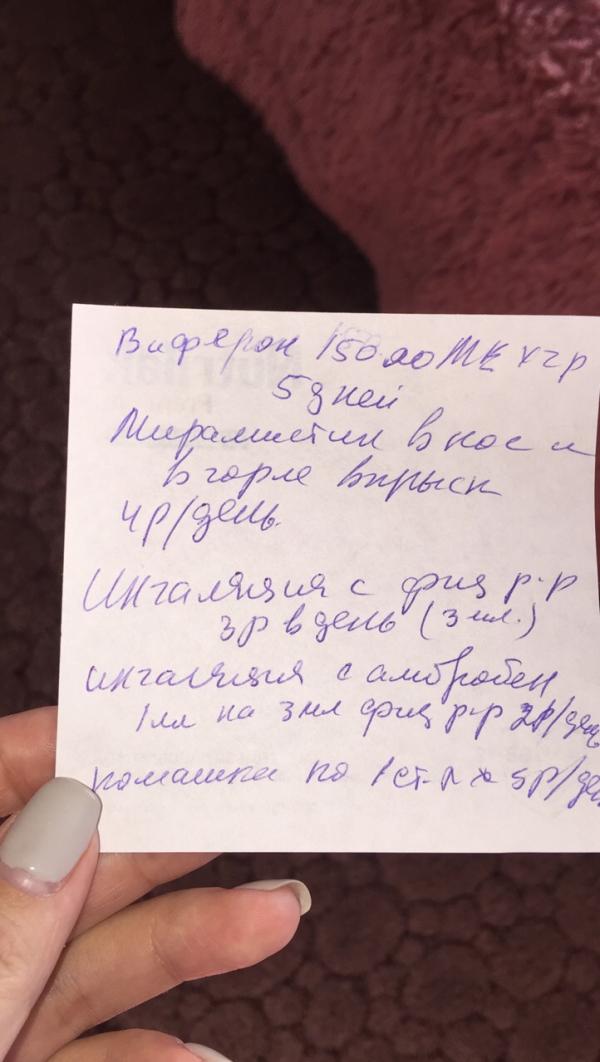 Виферон 150.00 МЕ х2р
5 дней
Мирамистин в нос и
в горле впрыск
4р/день.
Ингаляция с физ р-р
3р в день (3 мл.)
ингаляция с амбробен
1 мл на 3 мл физ р-р 2р/день
ромашки по 1 ст.л х 5р/де